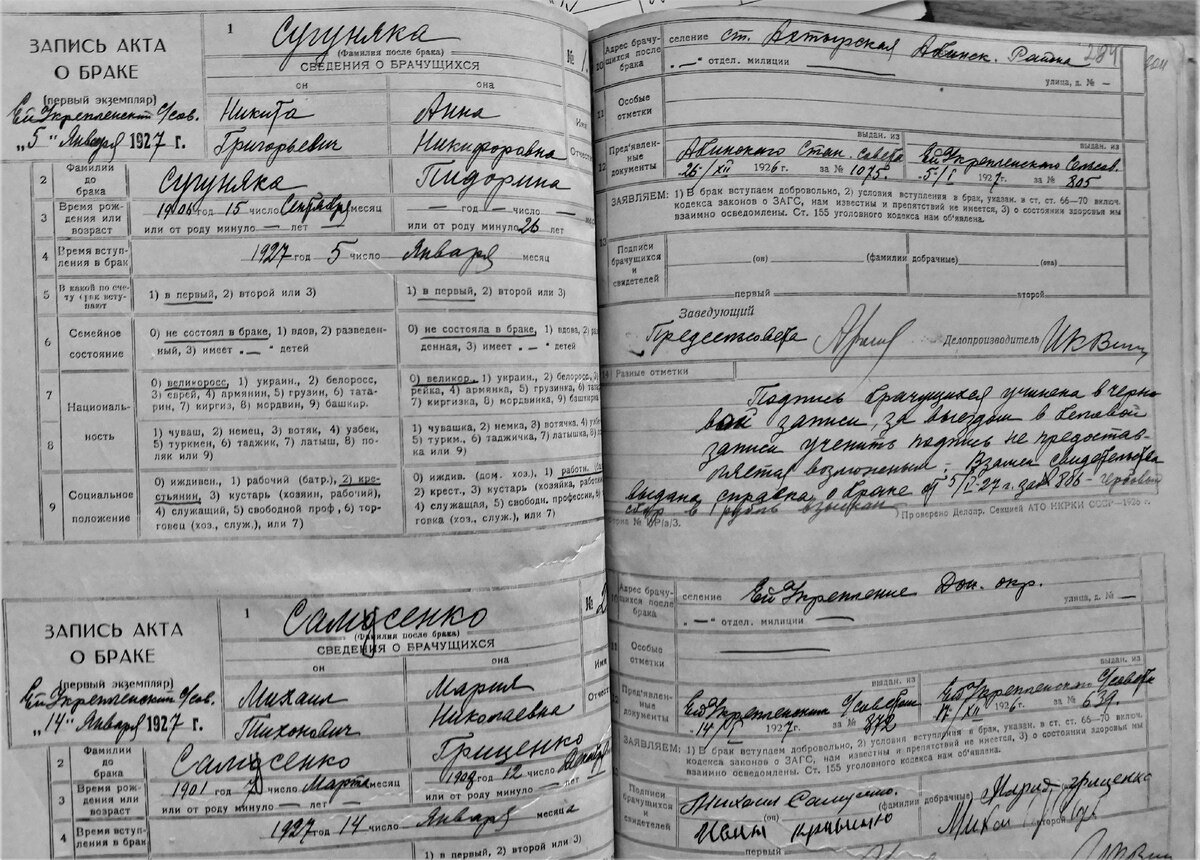 ЗАПИСЬ АКТА
О БРАКЕ
(первый экземпляр)
Ей Укрепленский с/сов.
„5“ Января 1927 г.
1 Сугуняка
(Фамилия после брака)
№ 1
СВЕДЕНИЯ О БРАЧУЩИХСЯ
он она
Никита Анна
Григорьевич Никифоровна
2 Фамилии до брака Сугуняка Пидорина
3 Время рождения или возраст 1906 год 15 число Сентября месяц — год — число —
или от роду минуло — лет или от роду минуло 26 лет
4 Время вступления в брак 1927 год 5 число Января месяц
5 В какой по счету брак вступают 1) в первый, 2) второй или 3) 1) в первый, 2) второй или 3)
6 Семейное состояние
0) не состоял в браке, 1) вдов, 2) разведен-
ный, 3) имеет „—“ детей
0) не состояла в браке, 1) вдова, 2) раз
денная, 3) имеет „—“ детей
7 Националь-
8 ность
0) великоросс, 1) украин., 2) белоросс,
3) еврей, 4) армянин, 5) грузин, 6) тата-
рин, 7) киргиз, 8) мордвин, 9) башкир.
0) великор., 1) украин., 2) белоросс., 3)
рейка, 4) армянка, 5) грузинка, 6) тата
7) киргизка, 8) мордвинка, 9) башкирка
1) чуваш, 2) немец, 3) вотяк, 4) узбек,
5) туркмен, 6) таджик, 7) латыш, 8) по-
ляк или 9)
1) чувашка, 2) немка, 3) вотячка, 4) узбе
5) туркм., 6) таджичка, 7) латышка, 8) по
ка или 9)
9 Социальное положение
0) иждивен., 1) рабочий (батр.), 2) кре-
стьянин, 3) кустарь (хозяин, рабочий),
4) служащий, 5) свободной проф., 6) тор-
говец (хоз., служ.), или 7)
0) иждив. (дом. хоз.), 1) работн. (ба
2) крест., 3) кустарь (хозяйка, работни
4) служащая, 5) свободн. профессии, 6)
говка (хоз., служ.) или 7)
10 Адрес брачущихся после брака
селение ст. Ахтырская Абинск. Района 284
„—“ отдел. милиции улица, д. № —
11 Особые отметки
12 Пред'явленные документы
выдан. из выдан. из
Абинского Стан. Совета Ей Укрепленского Сельсов.
26/XII 1926 г. за № 1075. 5/I 1927 г. за № 805
ЗАЯВЛЯЕМ: 1) В брак вступаем добровольно, 2) условия вступления в брак, указан. в ст. ст. 66—70 включ.
кодекса законов о ЗАГС, нам известны и препятствий не имеется, 3) о состоянии здоровья мы
взаимно осведомлены. Ст. 155 уголовного кодекса нам об'явлена.
13 Подписи брачущихся и свидетелей
(он) (фамилии добрачные) (она)
первый второй
Заведующий
Предсельсовета Делопроизводитель
14) Разные отметки
Подпись брачущихся учинена в черно
вой записи, за выездом в беловой
записи учинить подпись не предостав-
ляется возможным. Взамен свидетельства
выдана справка о браке от 5/I-27 г. за № 806 — гербовый
сбор в 1 рубль взыскан
Проверено Делопр. Секцией АТО НКРКИ СССР—1926 г.
ЗАПИСЬ АКТА
О БРАКЕ
(первый экземпляр)
Ей Укрепленский с/сов.
„14“ Января 1927 г.
1 Самусенко
(Фамилия после брака)
№ 2
СВЕДЕНИЯ О БРАЧУЩИХСЯ
он она
Михаил Мария
Тихонович Николаевна
2 Фамилии до брака Самусенко Гриценко
3 Время рождения или возраст 1901 год число Марта месяц год 12 число
или от роду минуло — лет или от роду минуло — лет
4 Время вступления в брак 1927 год 14 число Января месяца
1) в первый, 2) второй или 3) 1) в первый, 2) второй или 3)
10 Адрес брачущихся после брака
селение Ей Укрепление Дон. окр.
„—“ отдел. милиции улица, д. № —
Особые отметки
Пред'явленные документы
выдан. из выдан. из
Ей Укрепленским с/советом Ей Укрепленского с/совета
14/I 1927 г. за № 872 17/XII 1926 г. за № 639.
ЗАЯВЛЯЕМ: 1) В брак вступаем добровольно, 2) условия вступления в брак, указан. в ст. ст. 66—70 включ.
кодекса законов о ЗАГС, нам известны и препятствий не имеется, 3) о состоянии здоровья мы
взаимно осведомлены. Ст. 155 уголовного кодекса нам об'явлена.
Подписи брачущихся и свидетелей
Михаил Самусенко. (фамилии добрачные) Мария Гриценко
(он)
первый второй